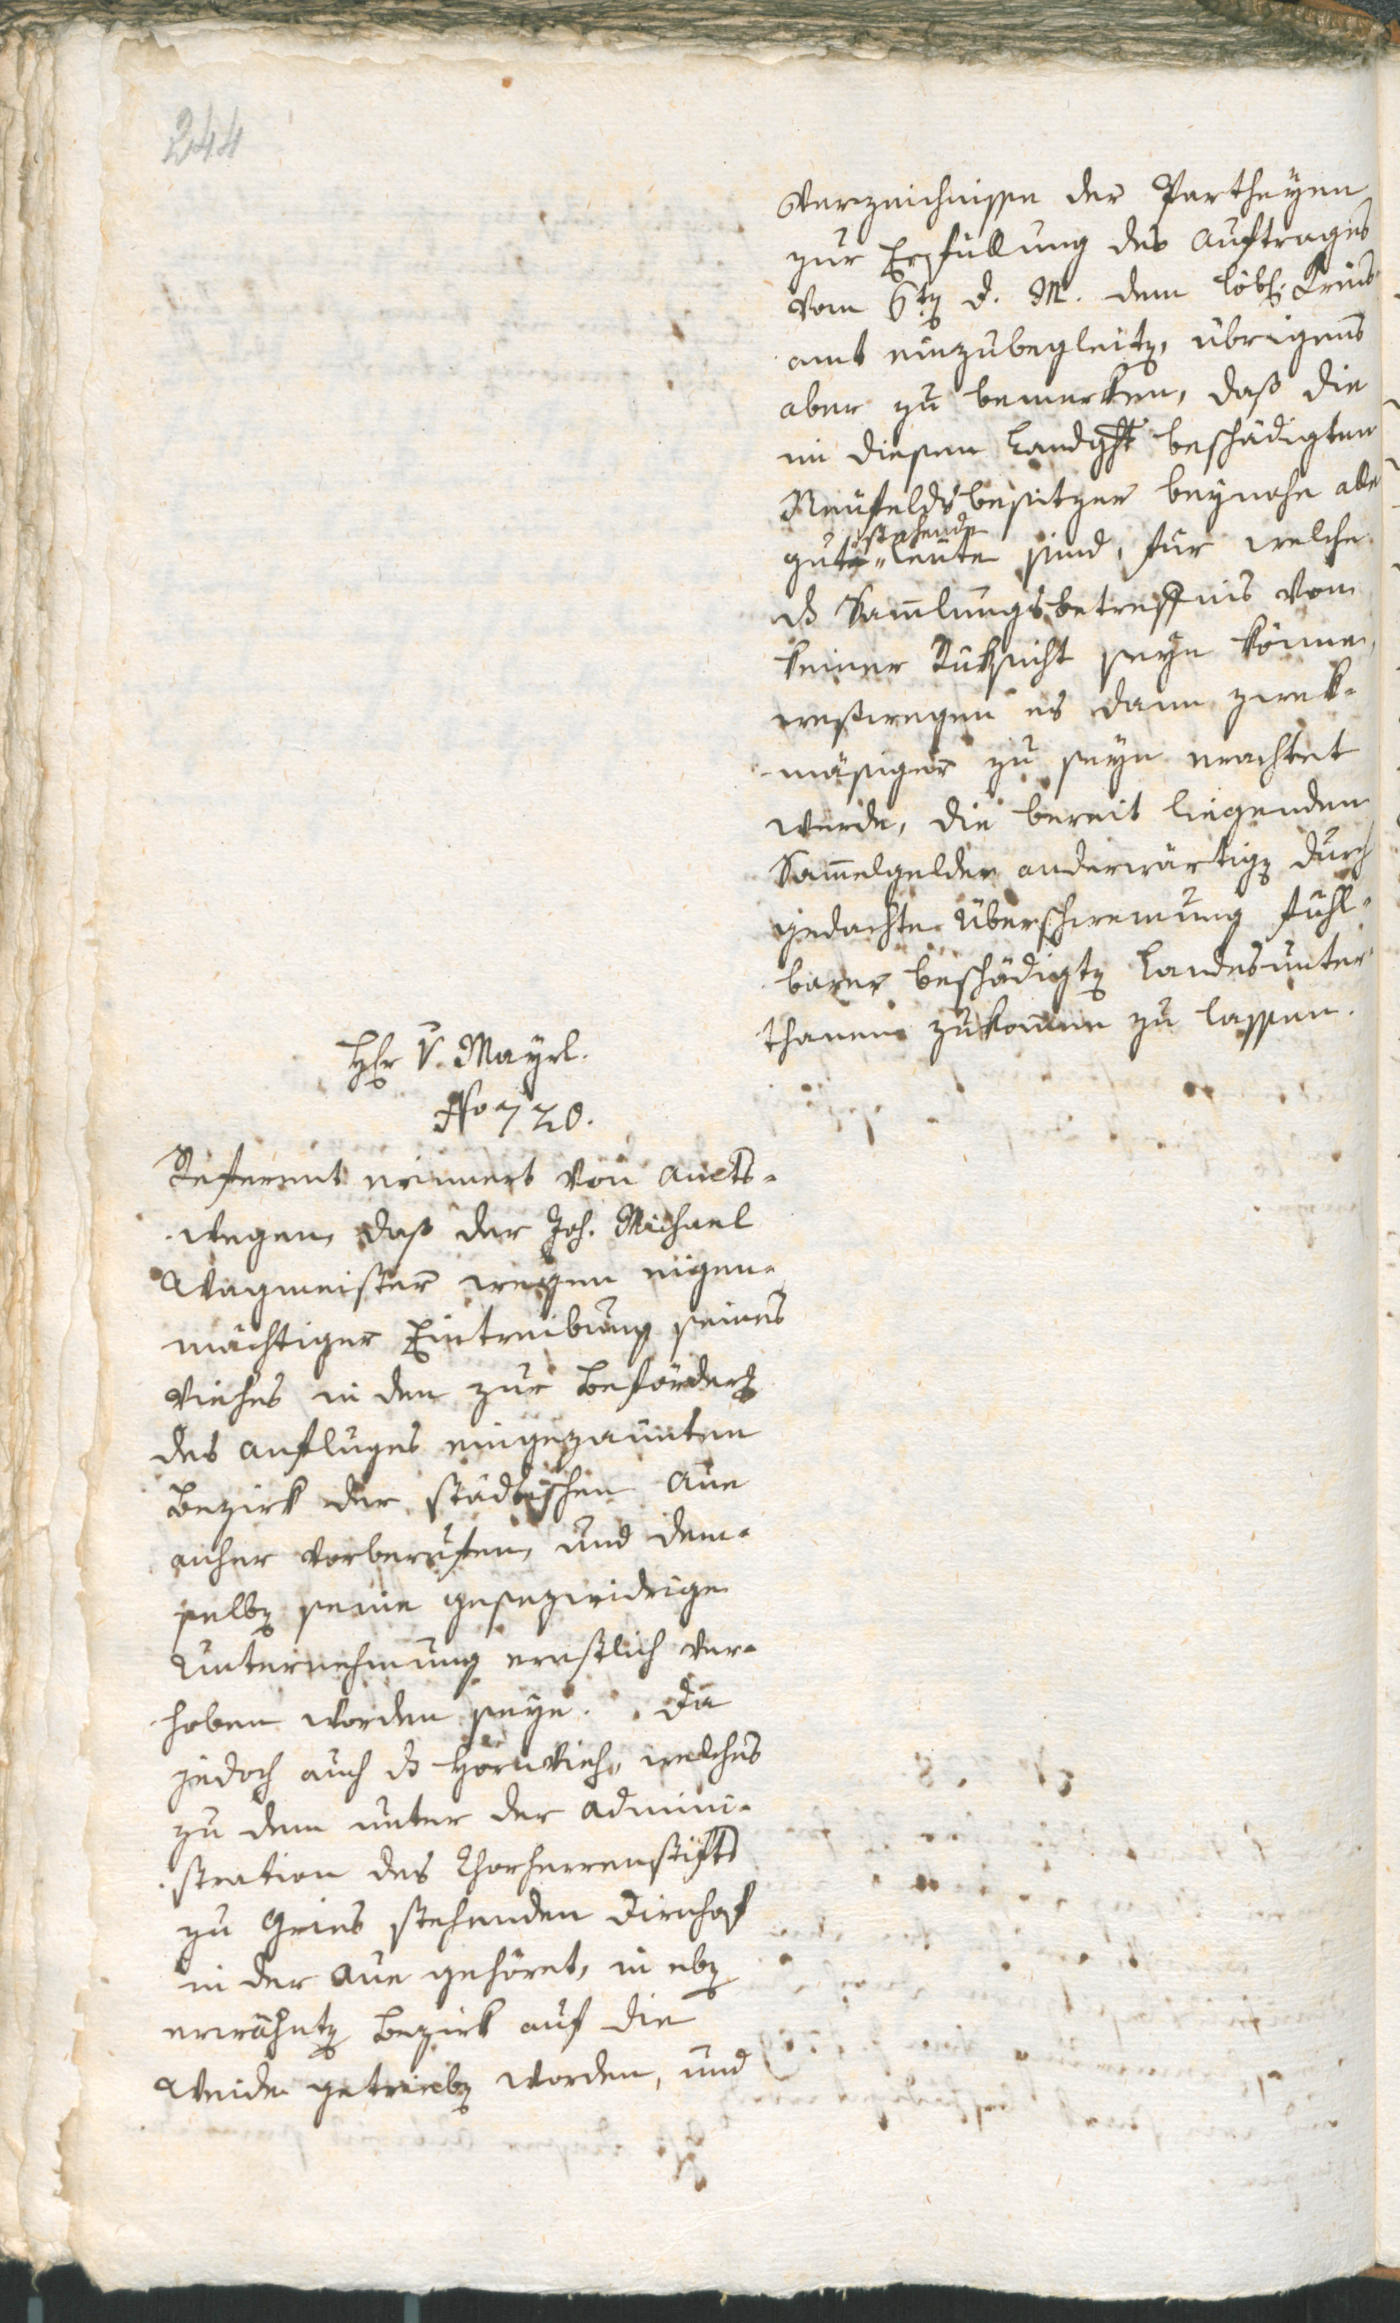 244
Verzeichnisse der Partheyen
zur Erfüllung des Auftrages
vom 6ten d. M. dem löbl. Kreis¬
amt einzubegleiten, übrigens
aber zu bemerken, daß die
in diesem Landght beschädigten
Neufeldsbesitzer beynahe alle
gut stehende Leute sind, für welche
ds Sammlungsbetreffnis von
keiner Rüksicht seyn könne,
weßwegen es dann zwek¬
mäsiger zu seyn erachtet
werde, die bereit liegenden
Sammelgelder anderwärtigen durch
gedachte Überschwemung fühl¬
barer beschädigten Landesunter¬
thanen zukommen zu lassen.
Hr v. Mayrl.
No 720.
Referent erinnert von Amts¬
wegen, daß der Joh. Michael
Wagmeister wegen eigen¬
mächtiger Eintreibung seines
Viehes in den zur Beförderg
des Anfluges eingezaunten
Bezirk der städtischen Aue
anher vorberufen, und dem¬
selben seine gesezwidrige
Unternehmung ernstlich ver¬
hoben worden seye. Da
jedoch auch ds Hornvieh, welches
zu dem unter der Admini¬
stration des Chorherrenstifts
zu Gries stehenden Dirnhof
in der Aue gehöret, in eben
erwähnten Bezirk auf die
Weide getrieben worden, und